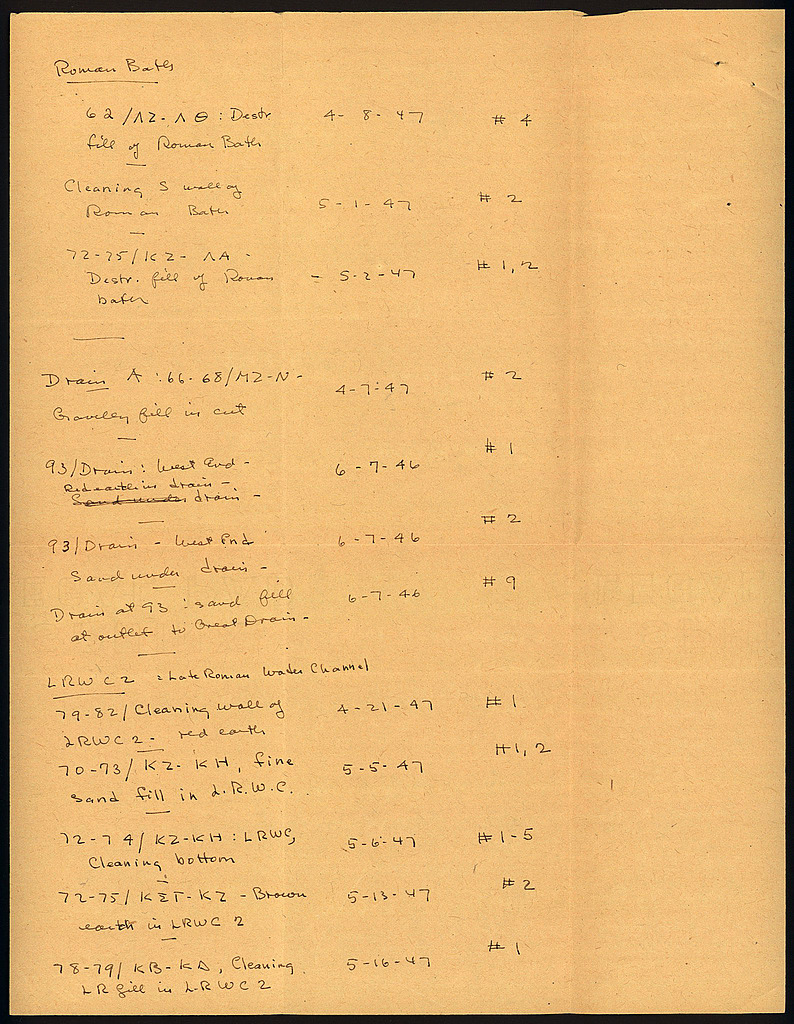 Roman Baths
62/ΛΖ-ΛΘ: Destr 4-8-47 # 4
fill of Roman Baths
Cleaning S wall of
Roman Baths 5-1-47 # 2
72-75/ΚΖ-ΛΑ -
Destr. fill of Roman - 5-2-47 # 1, 2
baths
Drain A: 66-68/ΜΖ-Ν - 4-7-47 # 2
Gravelly fill in cut
93/Drain: West End - 6-7-46 # 1
Red earth in drain -
Sand under drain -
93/Drain - West End 6-7-46 # 2
Sand under drain -
Drain at 93: sand fill 6-7-46 # 9
at outlet to Great Drain -
LRWC2 = Late Roman Water Channel
79-82/Cleaning wall of 4-21-47 # 1
LRWC2 - red earth
70-73/ΚΖ-ΚΗ, fine 5-5-47 # 1, 2
sand fill in L.R.W.C.
72-74/ΚΖ-ΚΗ: LRWC, 5-6-47 # 1-5
Cleaning bottom
72-75/ΚΣΤ-ΚΖ - Brown 5-13-47 # 2
earth in LRWC 2
78-79/ΚΒ-ΚΔ, Cleaning 5-16-47 # 1
LR fill in LRWC2